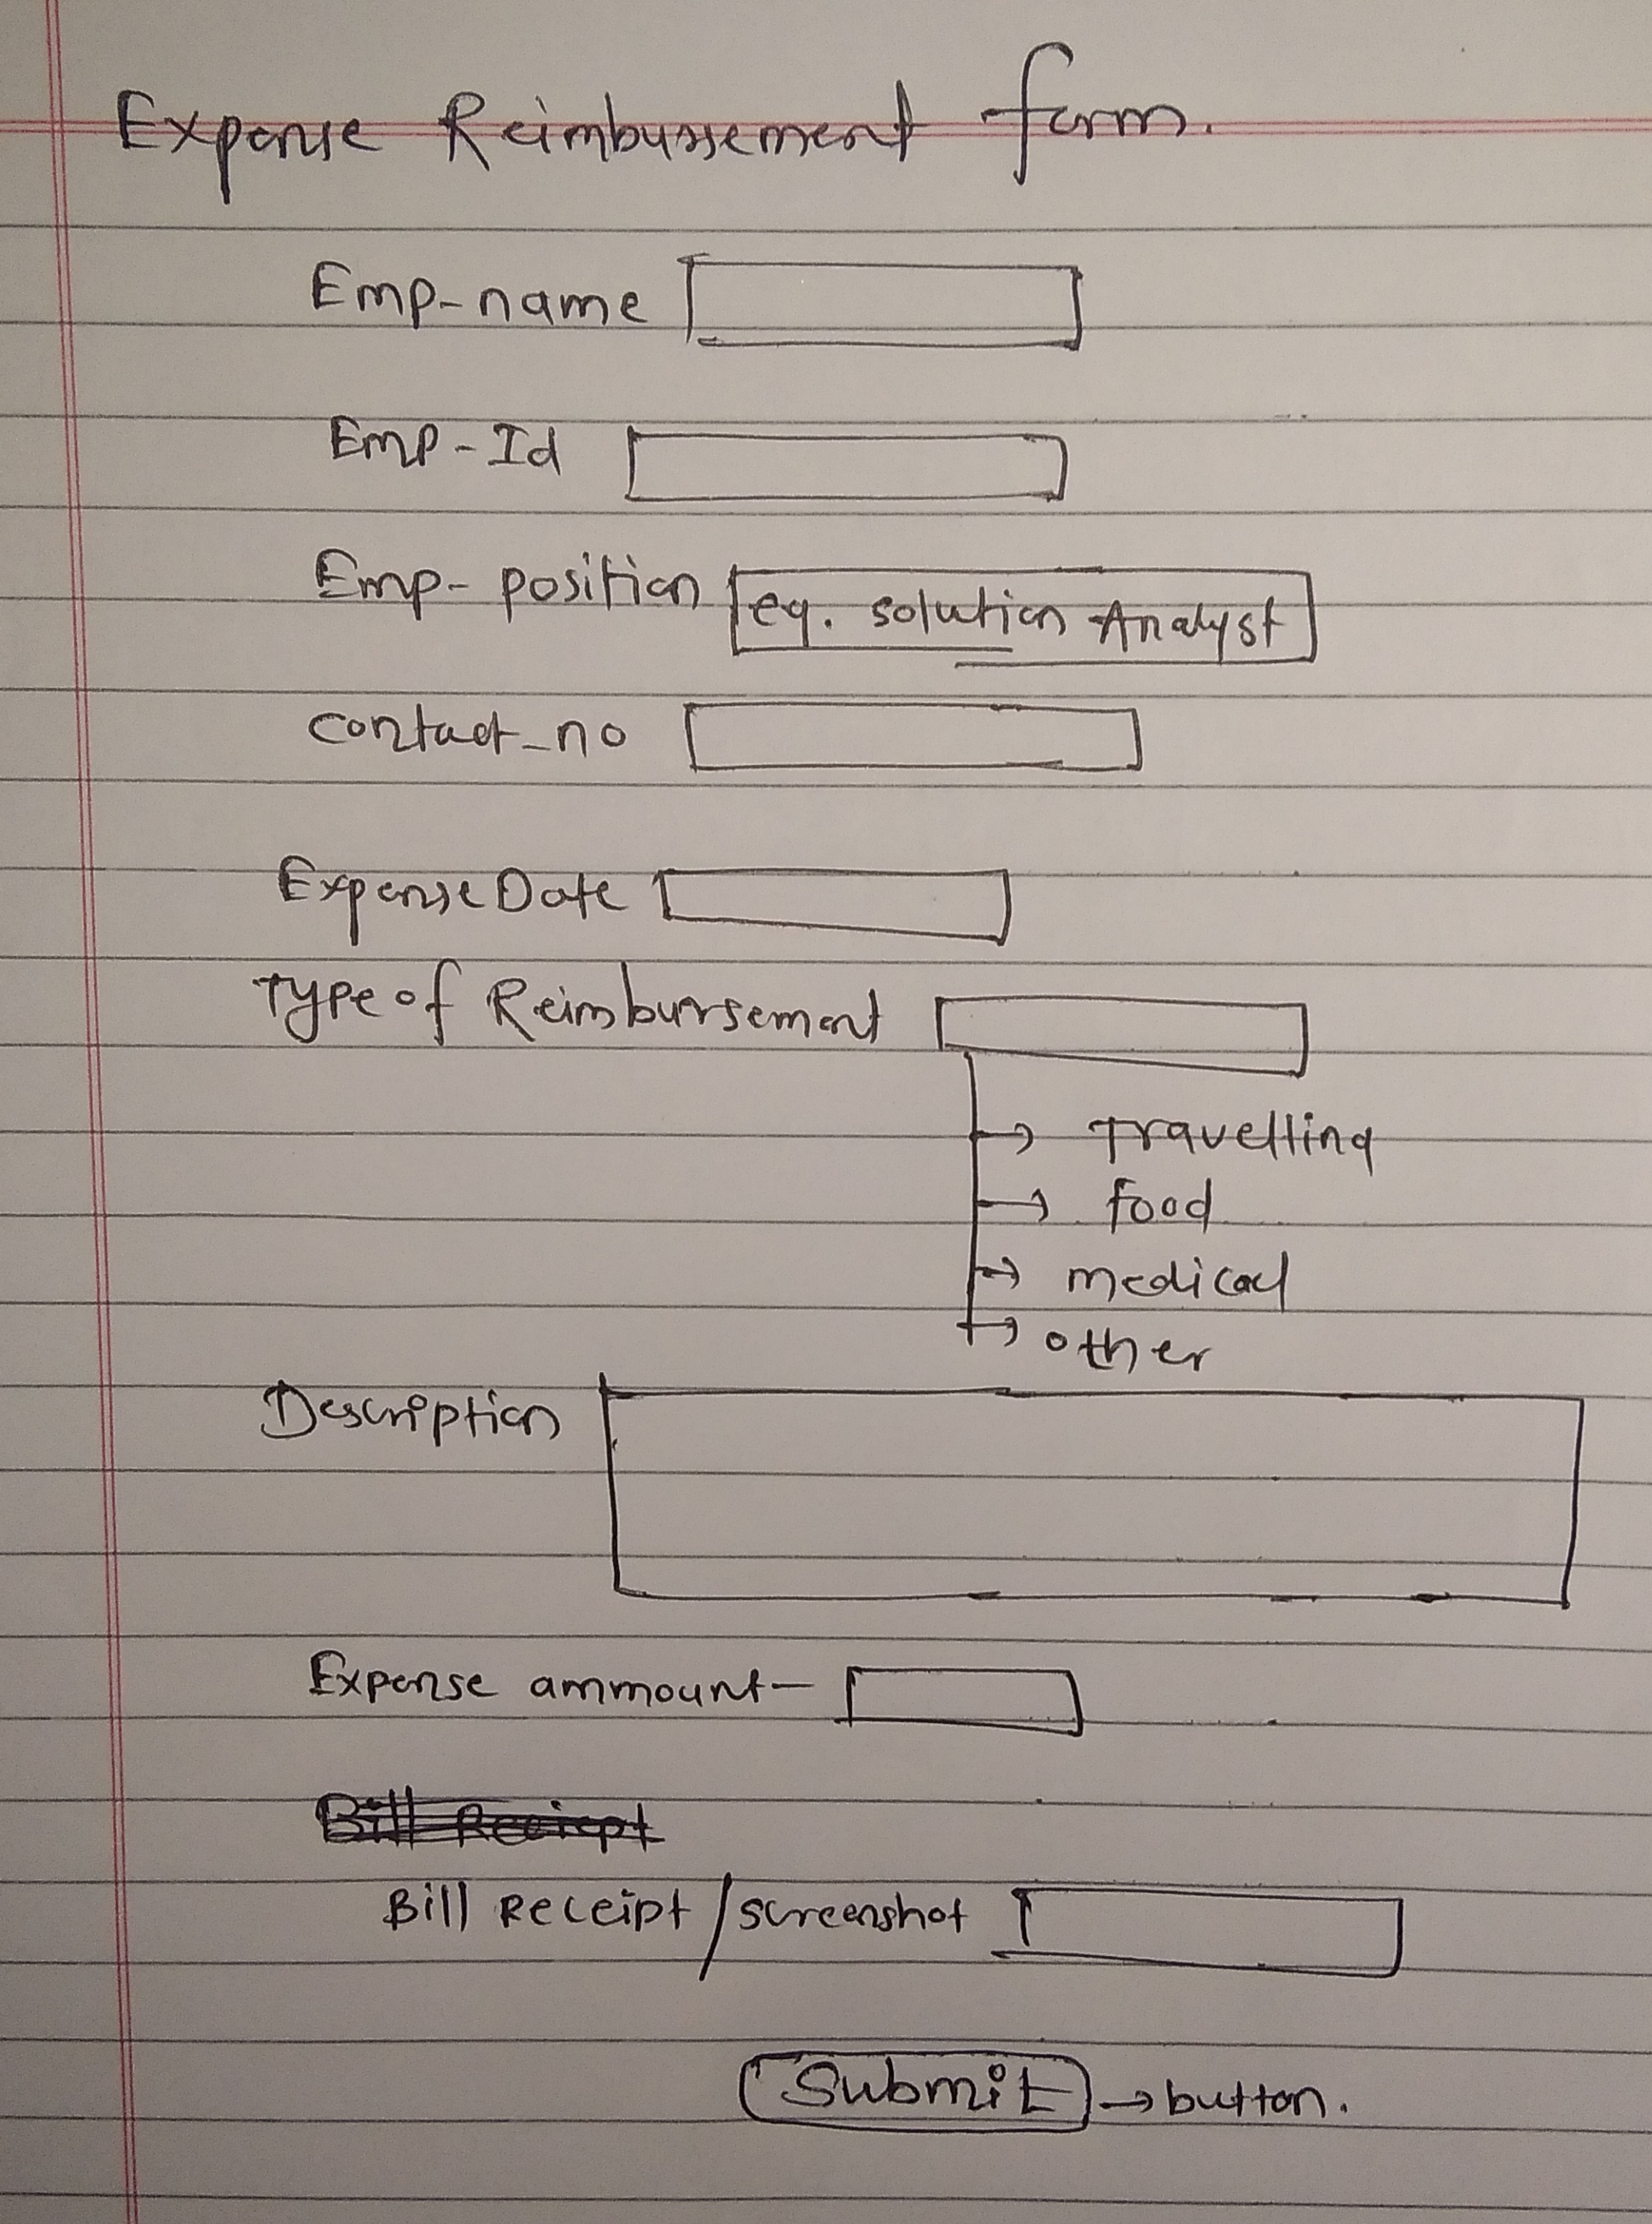 Expense Reimbursement form.
Emp-name
Emp-Id
Emp-position eg. solution Analyst
contact_no
Expense Date
Type of Reimbursement
Travelling
food
medical
other
Description
Expense ammount-
Bill Receipt
Bill Receipt/screenshot
Submit → button.